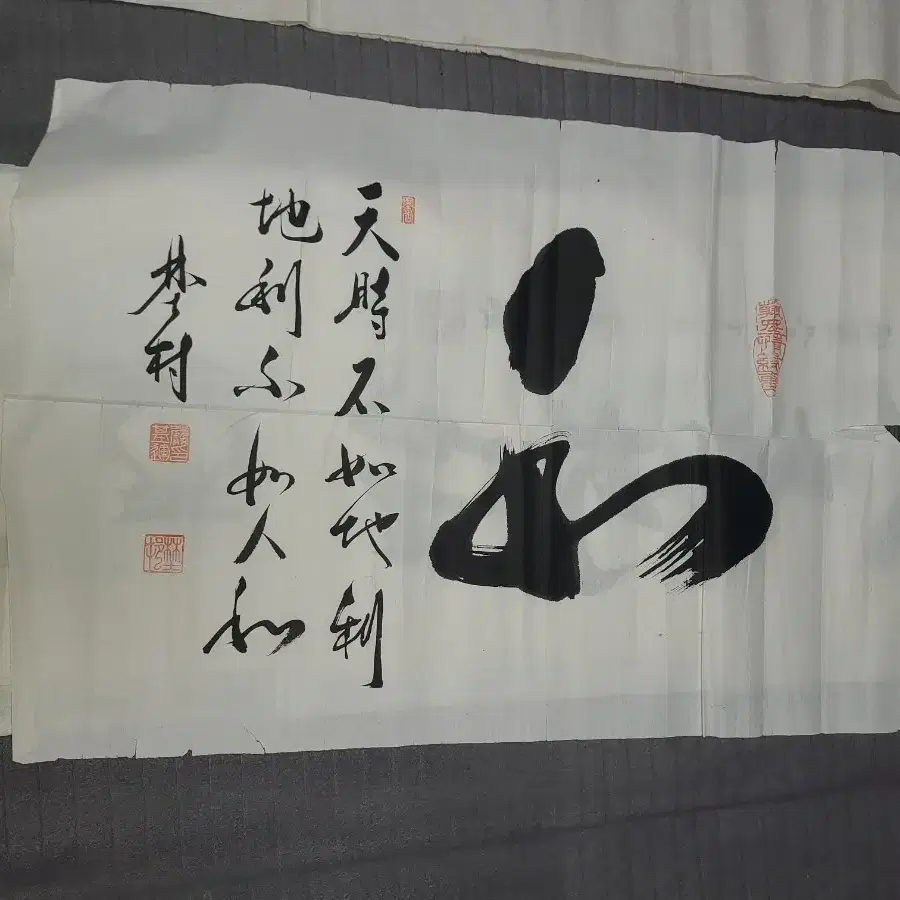 和
天時不如地利
地利不如人和
埜村